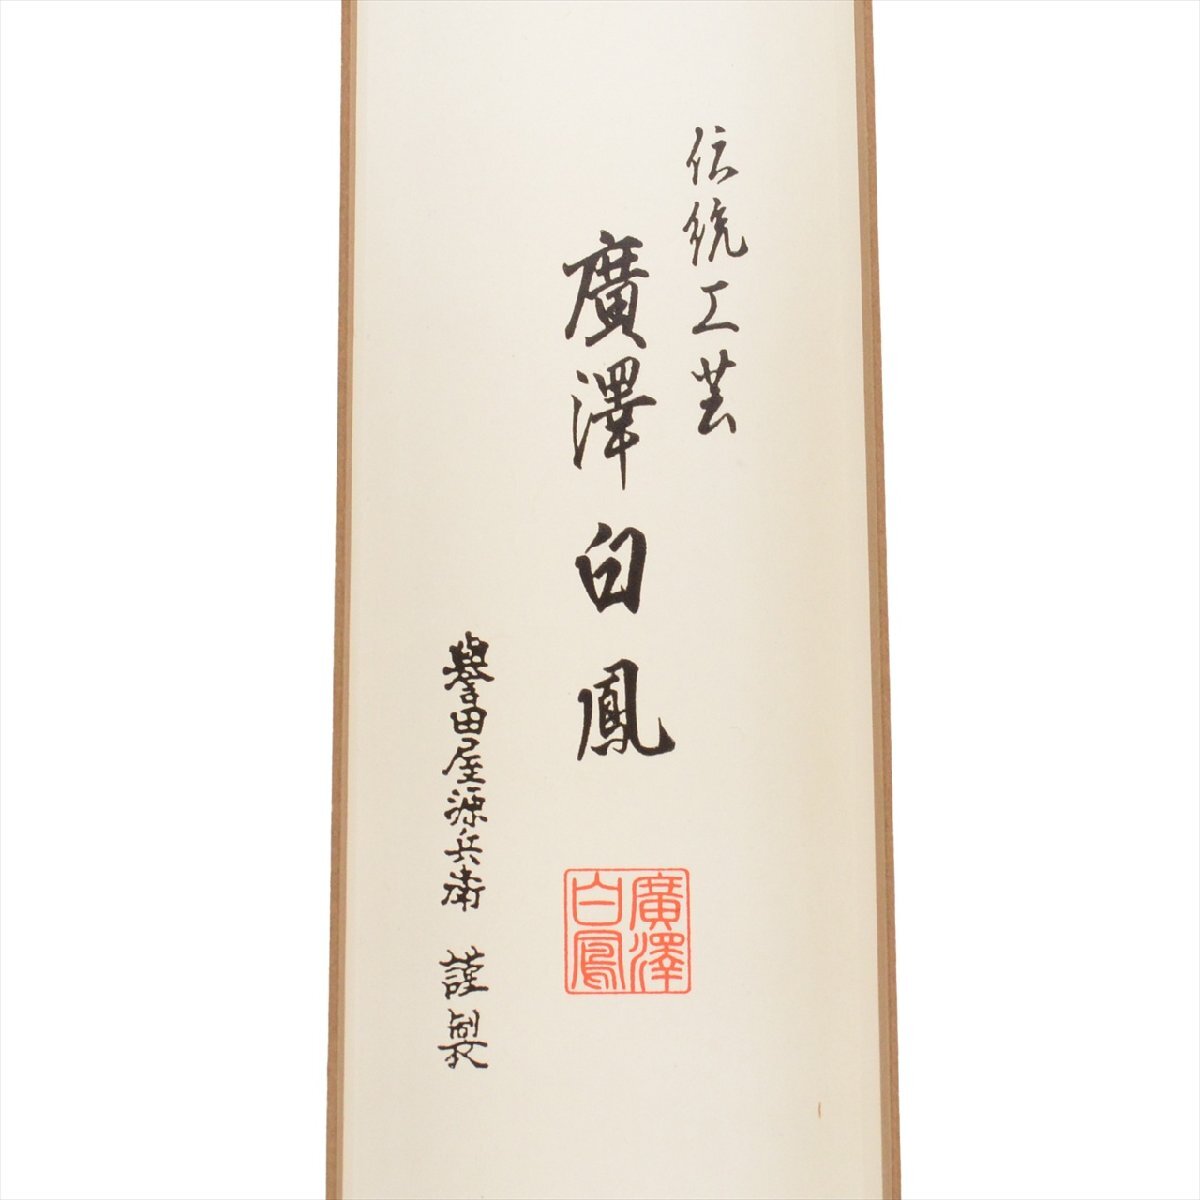 伝統工芸
廣澤白鳳
廣澤
白鳳
譽田屋源兵衛 謹製